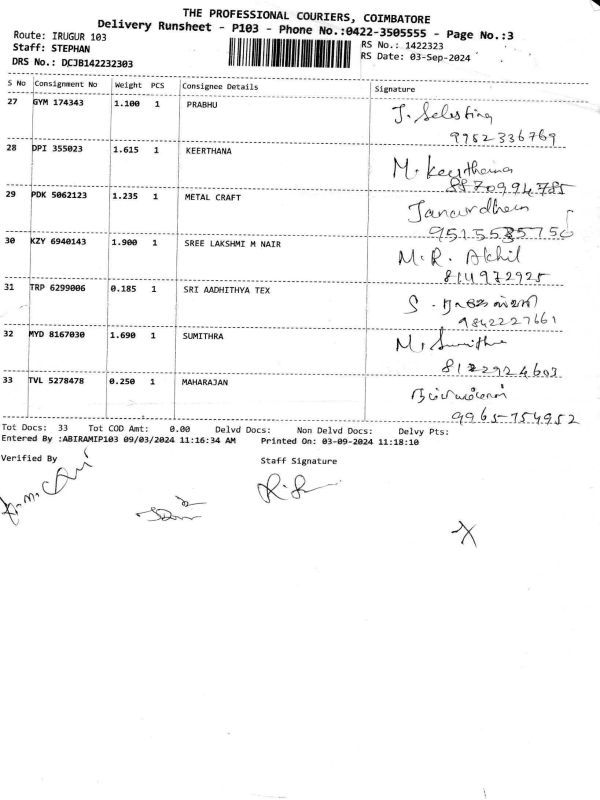 THE PROFESSIONAL COURIERS, COIMBATORE
Delivery Runsheet - P103 - Phone No.:0422-3505555 - Page No.:3
Route: IRUGUR 103
RS No.: 1422323
Staff: STEPHAN
RS Date: 03-Sep-2024
DRS No.: DCJB142232303
S No Consignment No Weight PCS Consignee Details Signature
27 GYM 174343 1.100 1 PRABHU J. Selestina
9952336769
28 DPI 355023 1.615 1 KEERTHANA M. Keerthana
8870994785
29 PDK 5062123 1.235 1 METAL CRAFT Janardhan
30 KZY 6940143 1.900 1 SREE LAKSHMI M NAIR M. R. Akhil
8114972925
31 TRP 6299006 0.185 1 SRI AADHITHYA TEX S.
9842227661
32 MYD 8167030 1.690 1 SUMITHRA M. Sumithra
8122924603
33 TVL 5278478 0.250 1 MAHARAJAN
9965-754952
Tot Docs: 33 Tot COD Amt: 0.00 Delvd Docs: Non Delvd Docs: Delvy Pts:
Entered By :ABIRAMIP103 09/03/2024 11:16:34 AM Printed On: 03-09-2024 11:18:10
Verified By Staff Signature